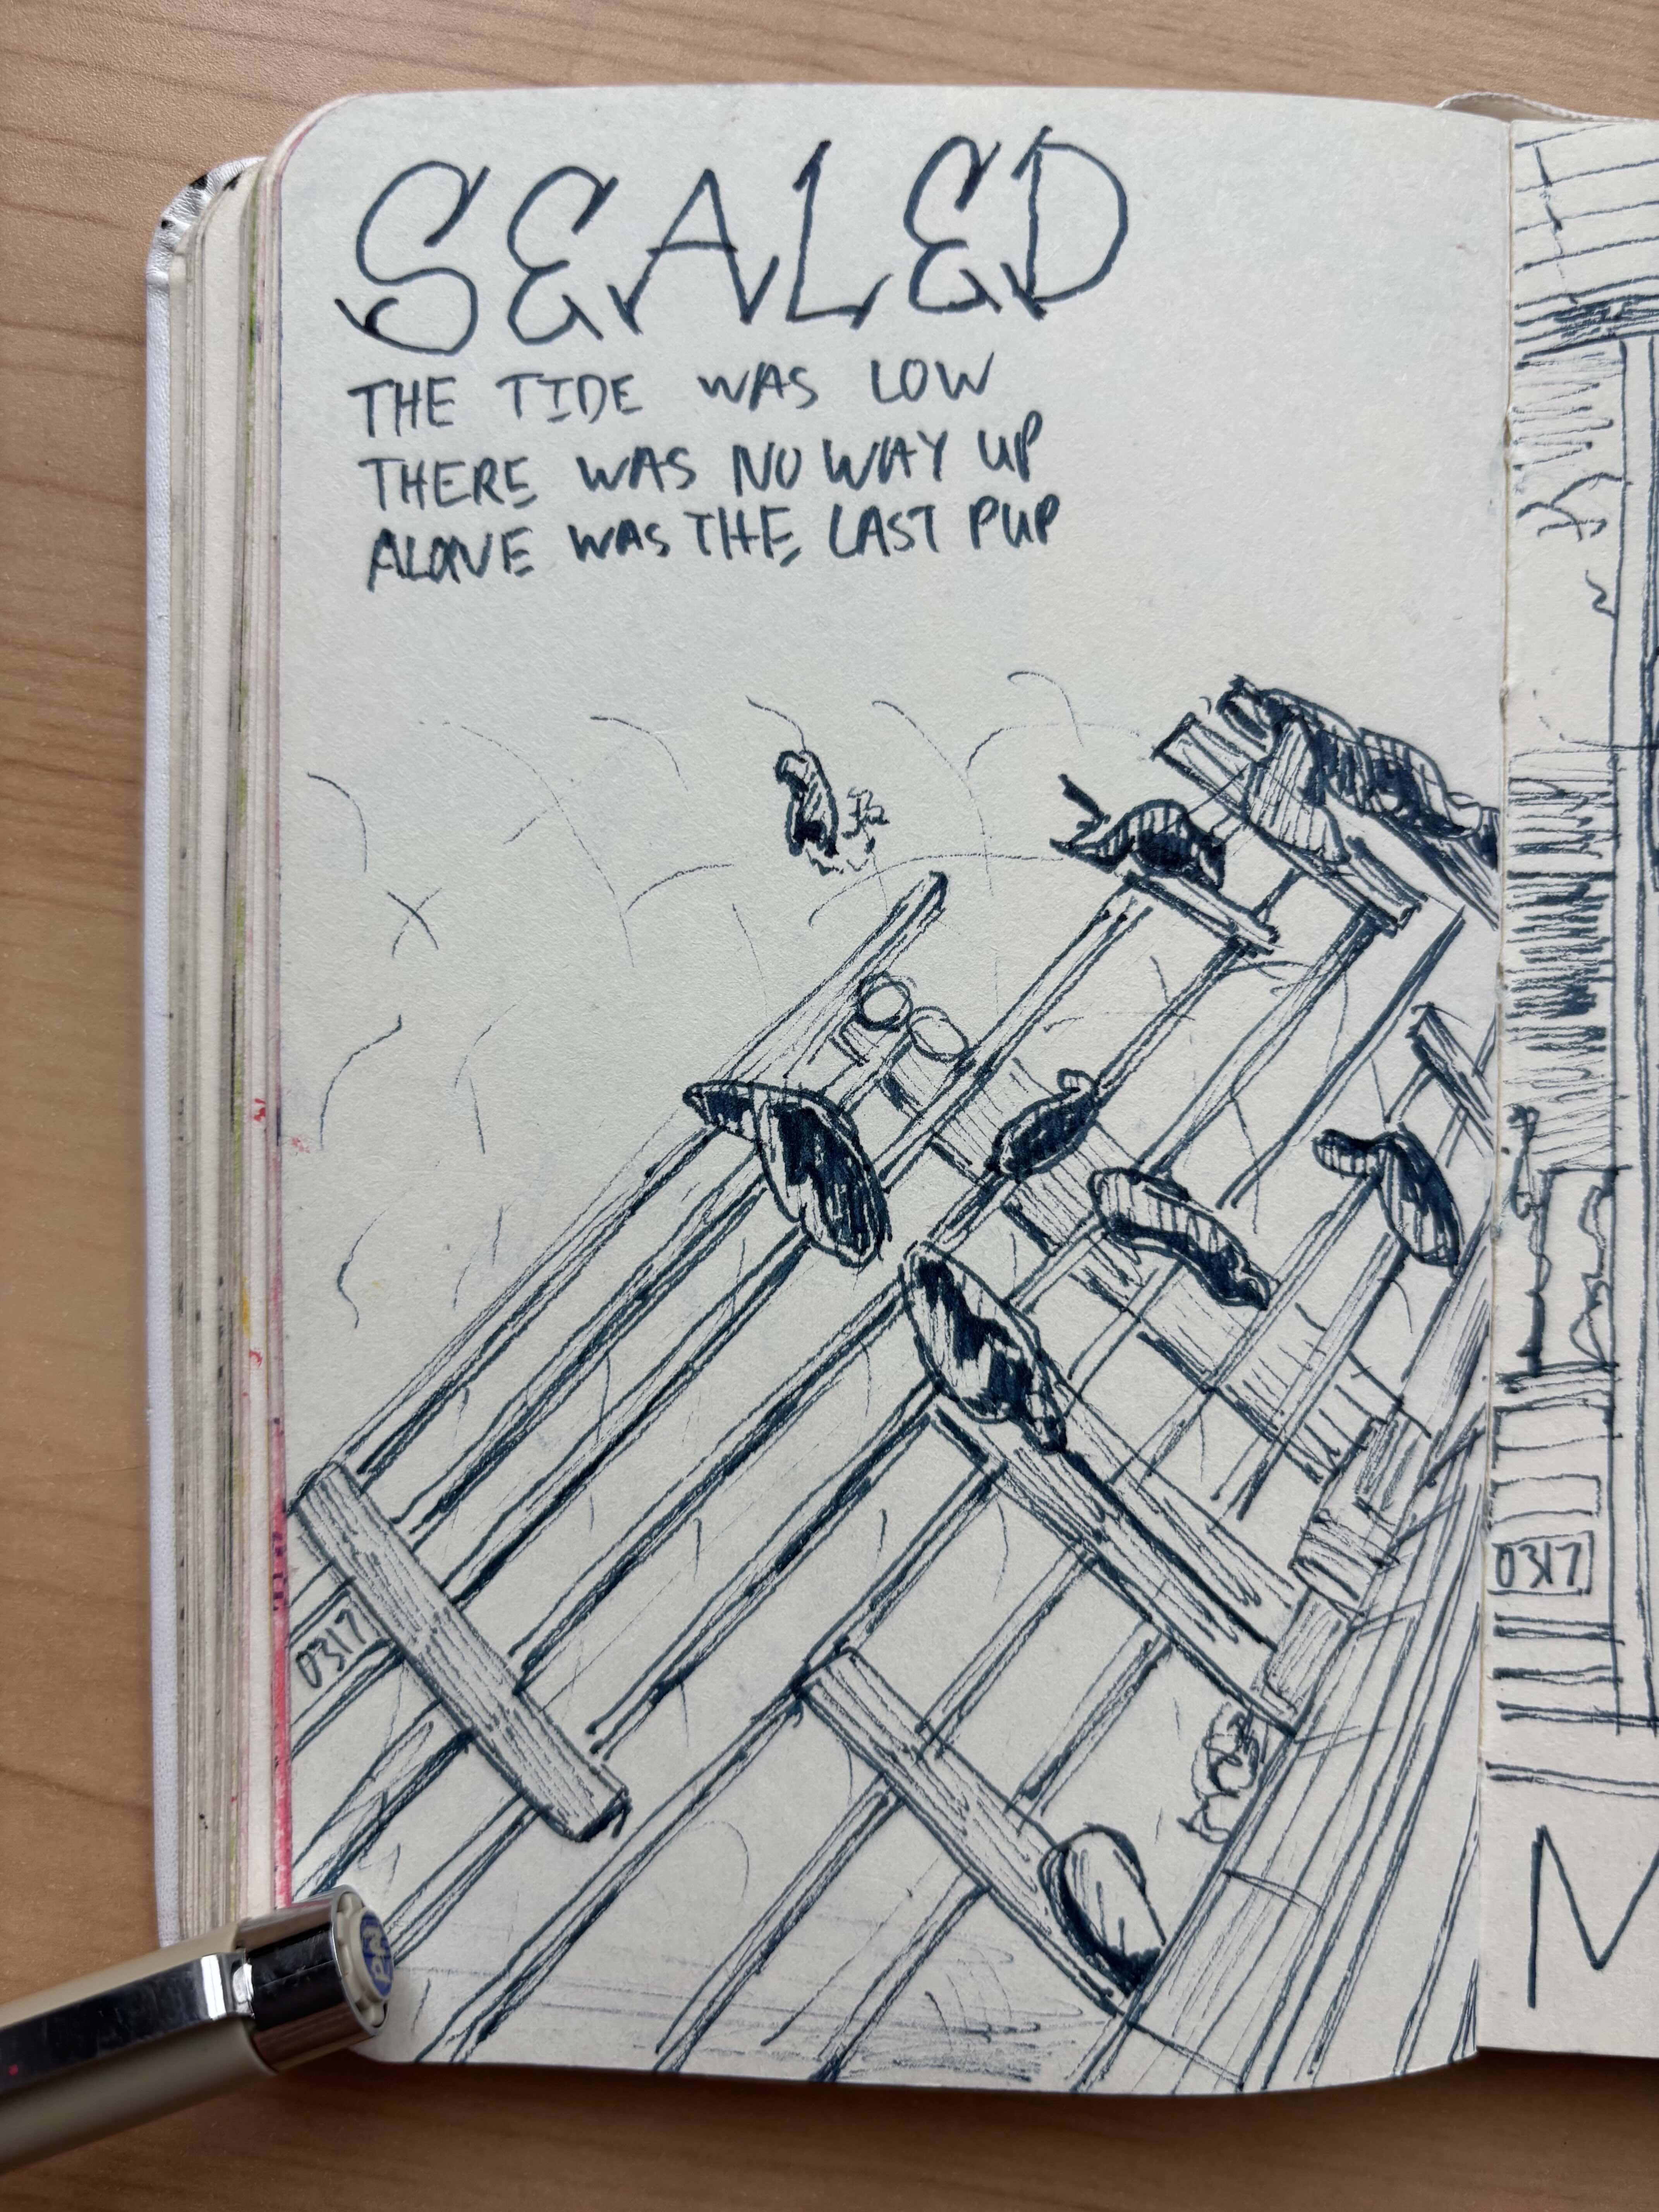 SEALED
THE TIDE WAS LOW
THERE WAS NO WAY UP
ALONE WAS THE LAST PUP
0317
0317
N